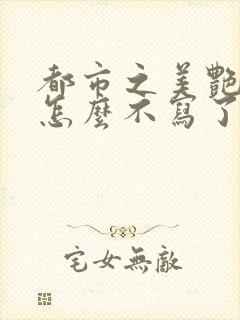 都市之美艷
怎麼不寫了
宅女無敵